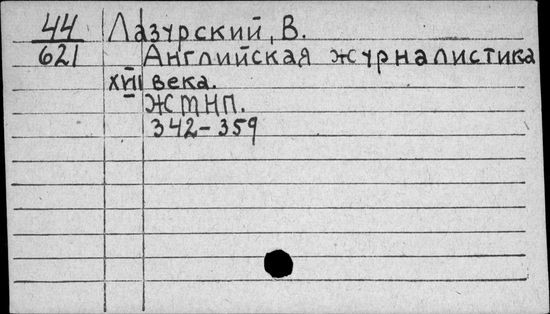 44 Лазурский, В.
621 Английская журналистика
XVIII века.
ЖМНП.
342-359